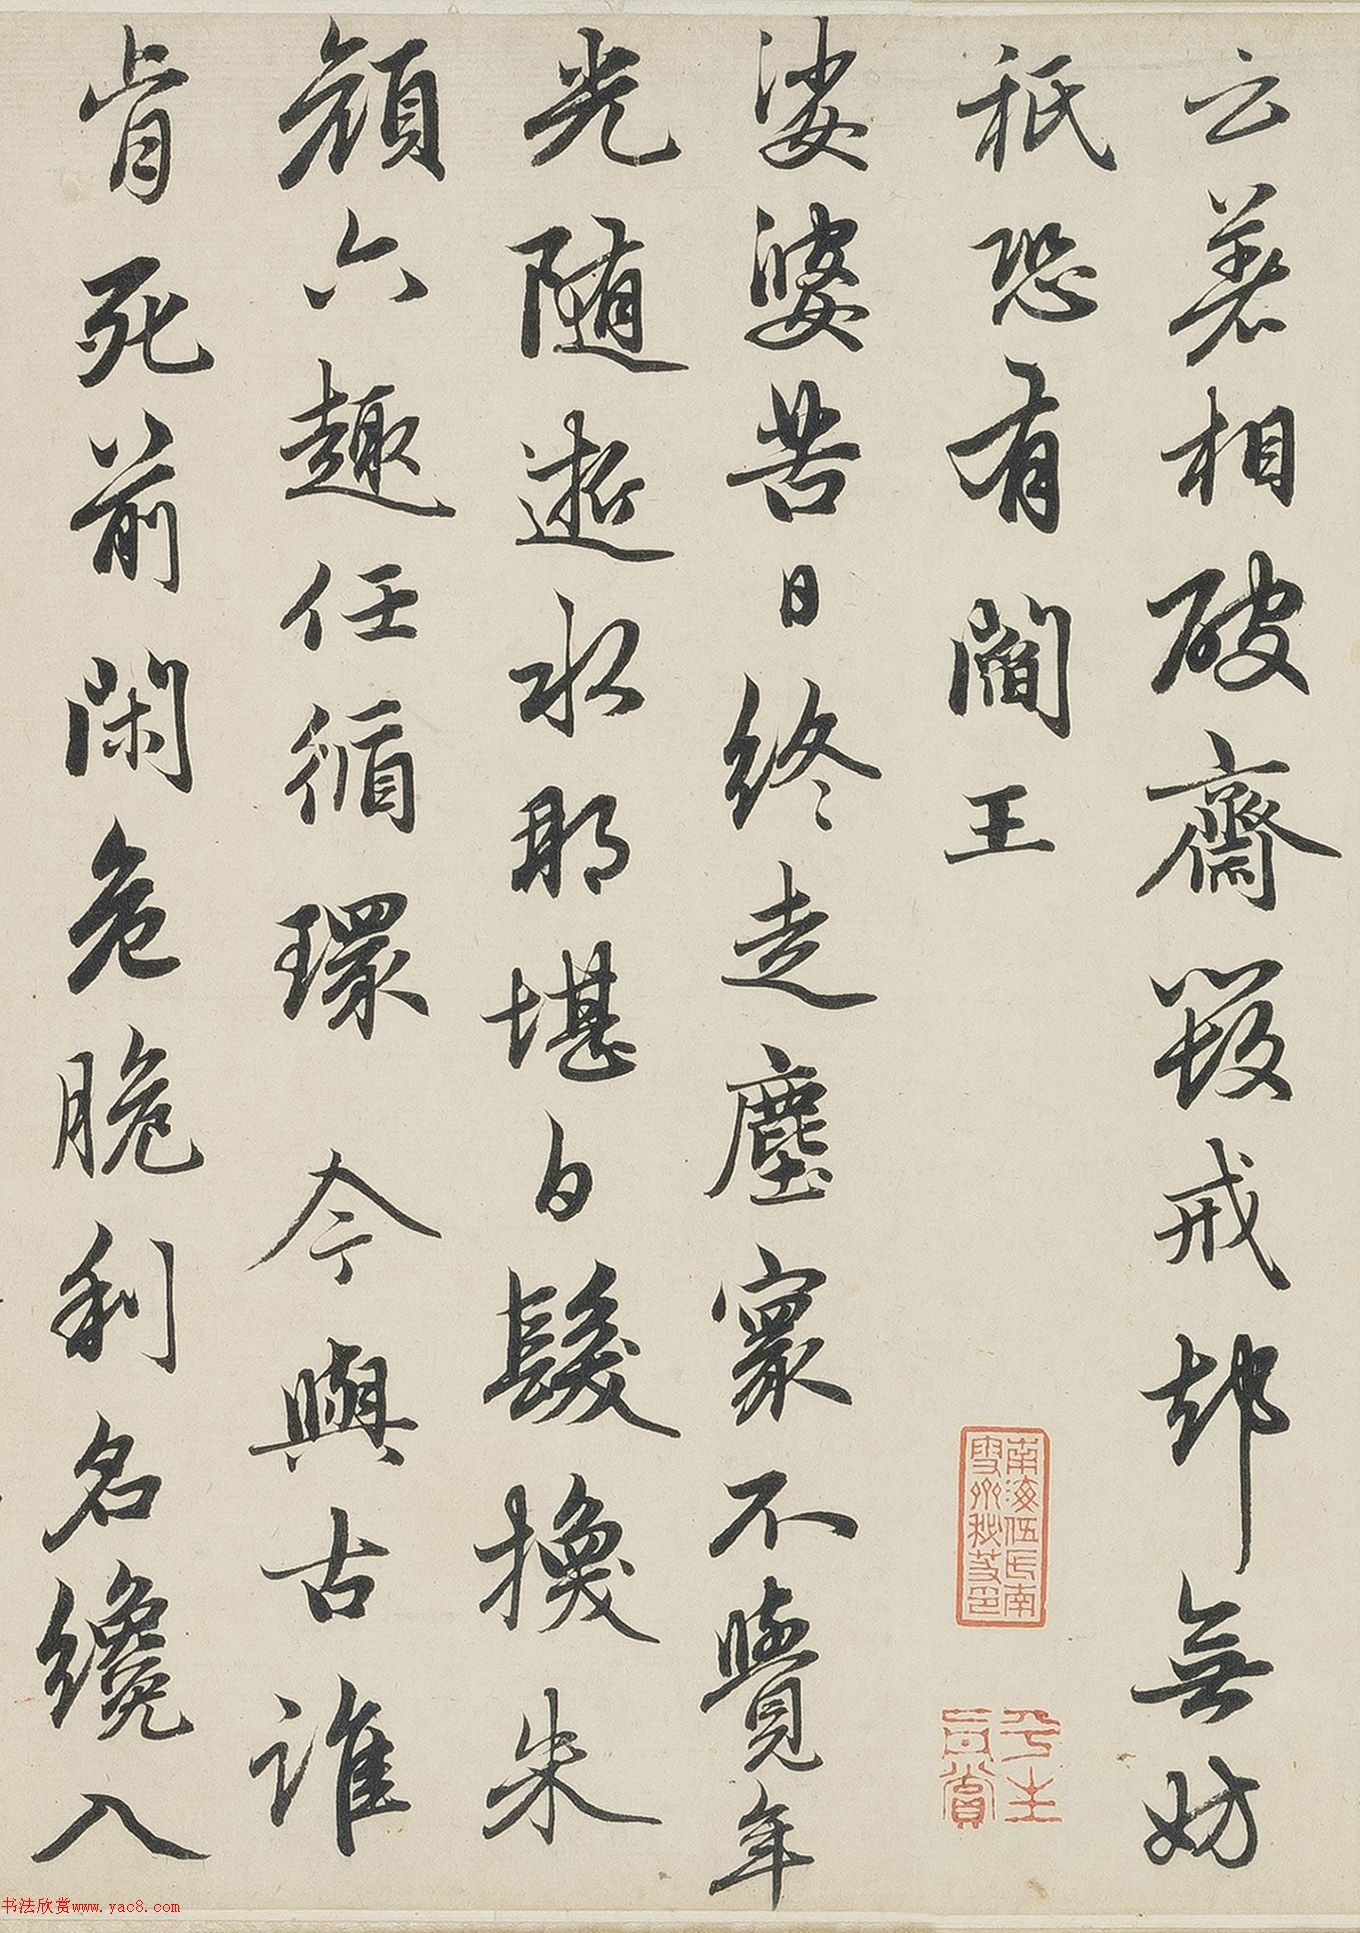 云著相破齋毀戒却無妨
祇恐有閻王
娑婆苦日終走塵寰不覺年
光隨逝水那堪白髮換朱
顏六趣任循環今與古誰
肯死前閑危脆利名纔入
南海伍氏南
雪齋秘笈印
平生
真賞
书法欣赏www.yac8.com